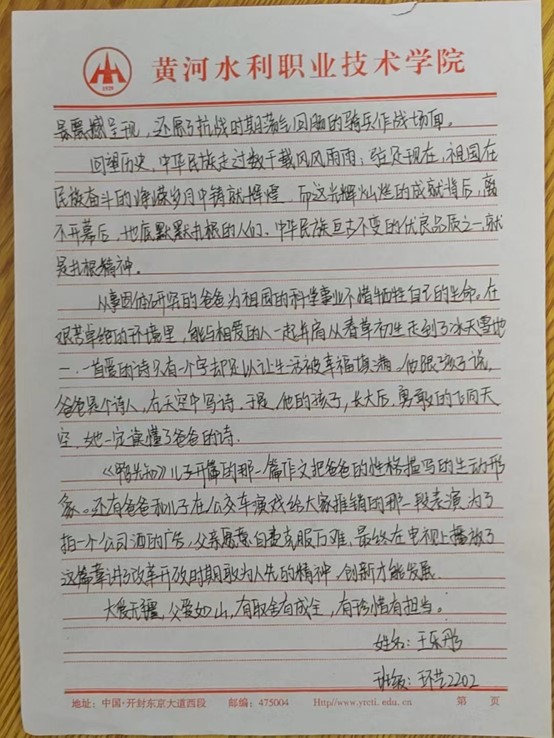 黄河水利职业技术学院
1929
景震撼呈现，还原了抗战时期荡气回肠的骑兵作战场面。
回望历史，中华民族走过数千载风风雨雨；驻足现在，祖国在
民族奋斗的峥嵘岁月中铸就辉煌。而这光辉灿烂的成就背后，离
不开幕后，地底默默扎根的人们。中华民族亘古不变的优良品质之一就
是扎根精神。
从事固体研究的爸爸为祖国的科学事业不惜牺牲自己的生命。在
艰苦卓绝的环境里，能与相爱的人一起并肩从春草初生走到了冰天雪地
一首爱的诗只有一个字却足以让生活被幸福填满。他跟孩子说，
爸爸是个诗人，在天空中写诗。于是，他的孩子，长大后，勇敢的飞向天
空，她一定读懂了爸爸的诗。
《鸭先知》儿子开篇的那一篇作文把爸爸的性格描写的生动形
象。还有爸爸和儿子在公交车演戏给大家推销的那一段表演为了
拍一个公司酒的广告，父亲愿意自费克服万难，最终在电视上播放了
这篇章讲了改革开放时期敢为人先的精神，创新才能发展.
大爱无疆，父爱如山，有取舍有成全，有珍惜有担当。
姓名：王乐彤
班级：环艺2202
地址：中国·开封东京大道西段 邮编：475004 Http//www.yrcti.edu.cn 第 页